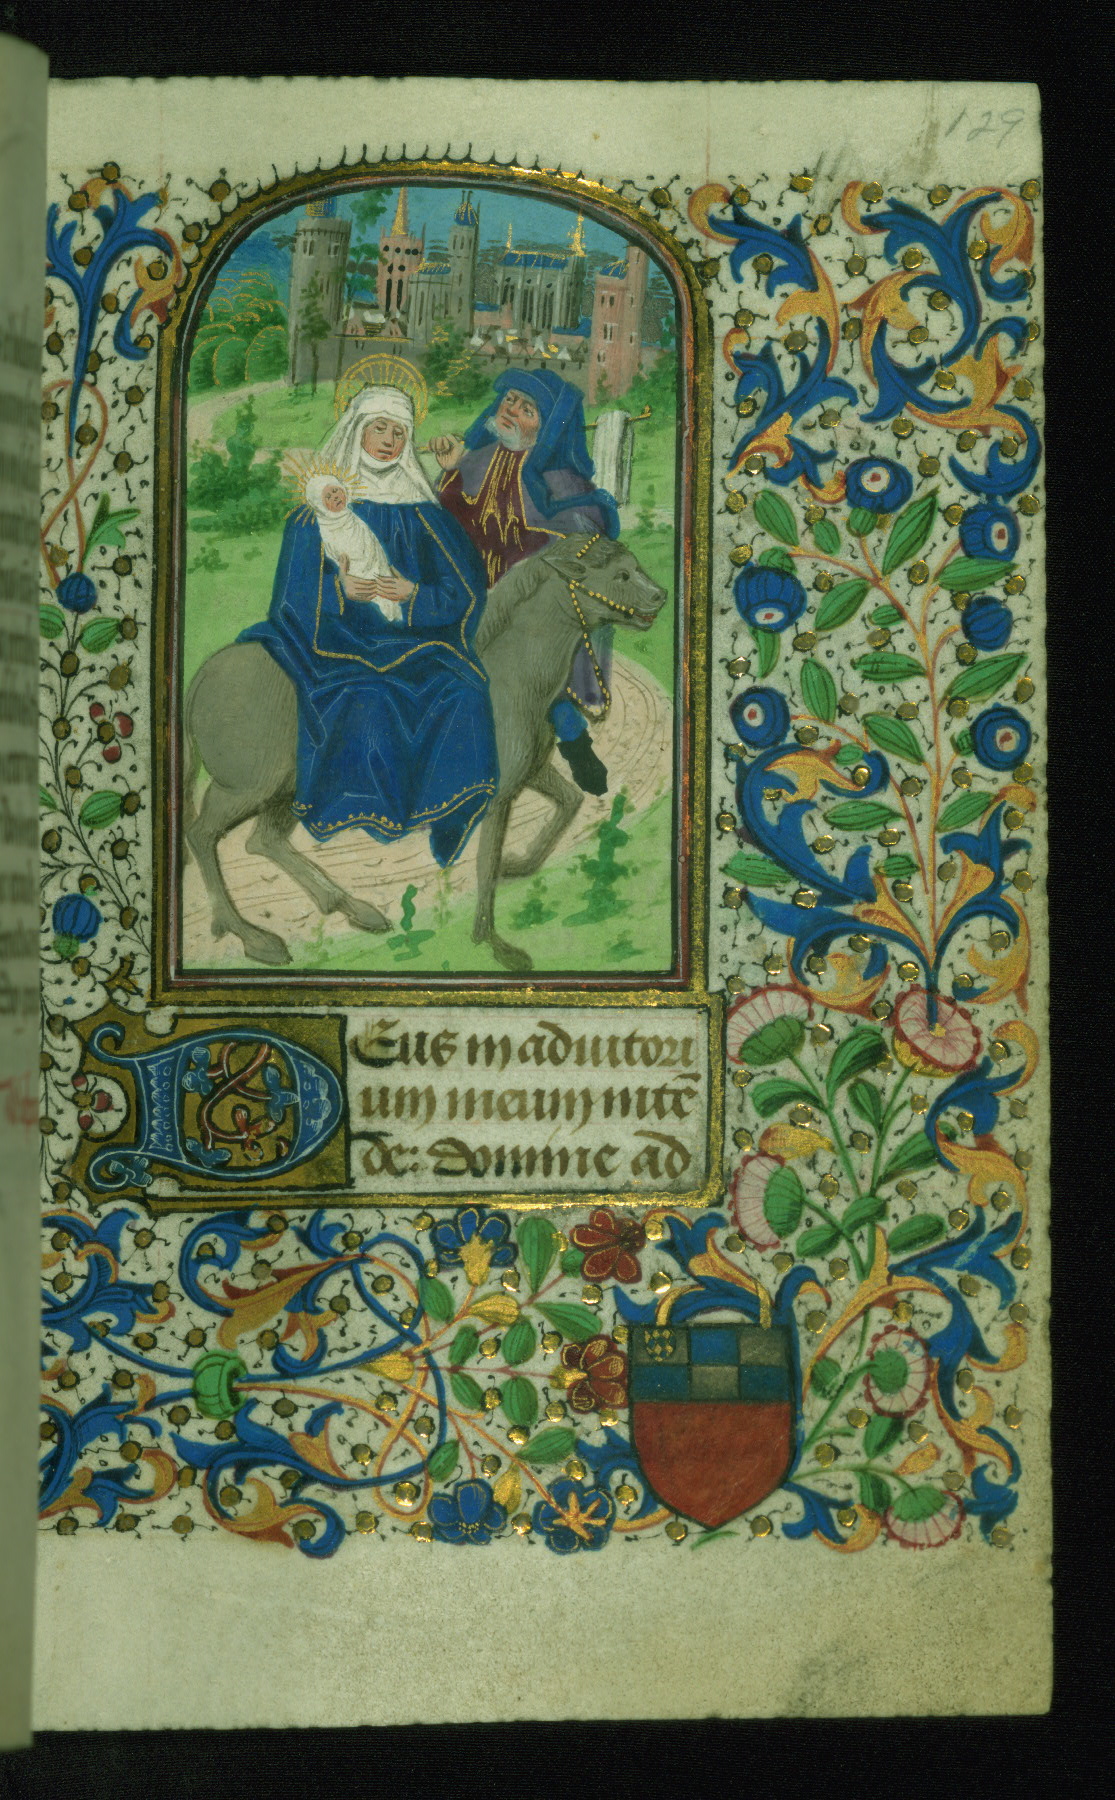 129
Deus in adiutori
um meum intē
de: Domine ad